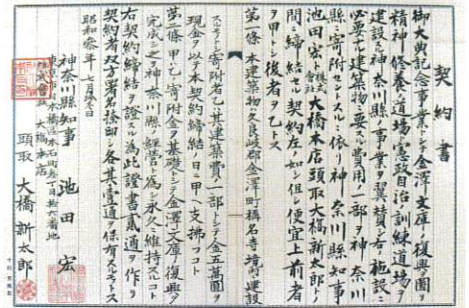 契約書
御大典記念事業トシテ金澤文庫ノ復興ヲ図リ
精神修養ノ道場、憲政自治ノ訓練道場ノ
建設ナル神奈川縣ノ事業ヲ翼賛シ右施設ニ
必要ナル建築物ニ要スル費用ノ一部ヲ神奈川
縣ヘ寄附セントスルニ依リ神奈川縣知事
池田宏ト株式會社大橋本店頭取大橋新太郎ノ
間ニ締結セル契約左ノ如シ但シ便宜上前者
ヲ甲トシ後者ヲ乙トス
第一條 本建築物ハ久良岐郡金澤町稱名寺境内ニ建設
スルモノトシ寄附者乙ハ其建築費ノ一部トシテ金五萬圓ヲ
現金ヲ以テ本契約締結ノ日ニ甲ヘ支拂フコト
第二條 甲ハ乙ノ寄附金ヲ基礎トシテ金澤文庫ノ復興ヲ
完成シ之ヲ神奈川縣ノ經營ト為シ永久ニ維持スルコト
右契約締結ヲ證スル為此證書貳通ヲ作リ
契約者双方署名捺印シ各其壹通ヲ保有スルモノトス
昭和参年七月
神奈川縣知事 池田 宏
株式會社大橋本店
頭取 大橋新太郎